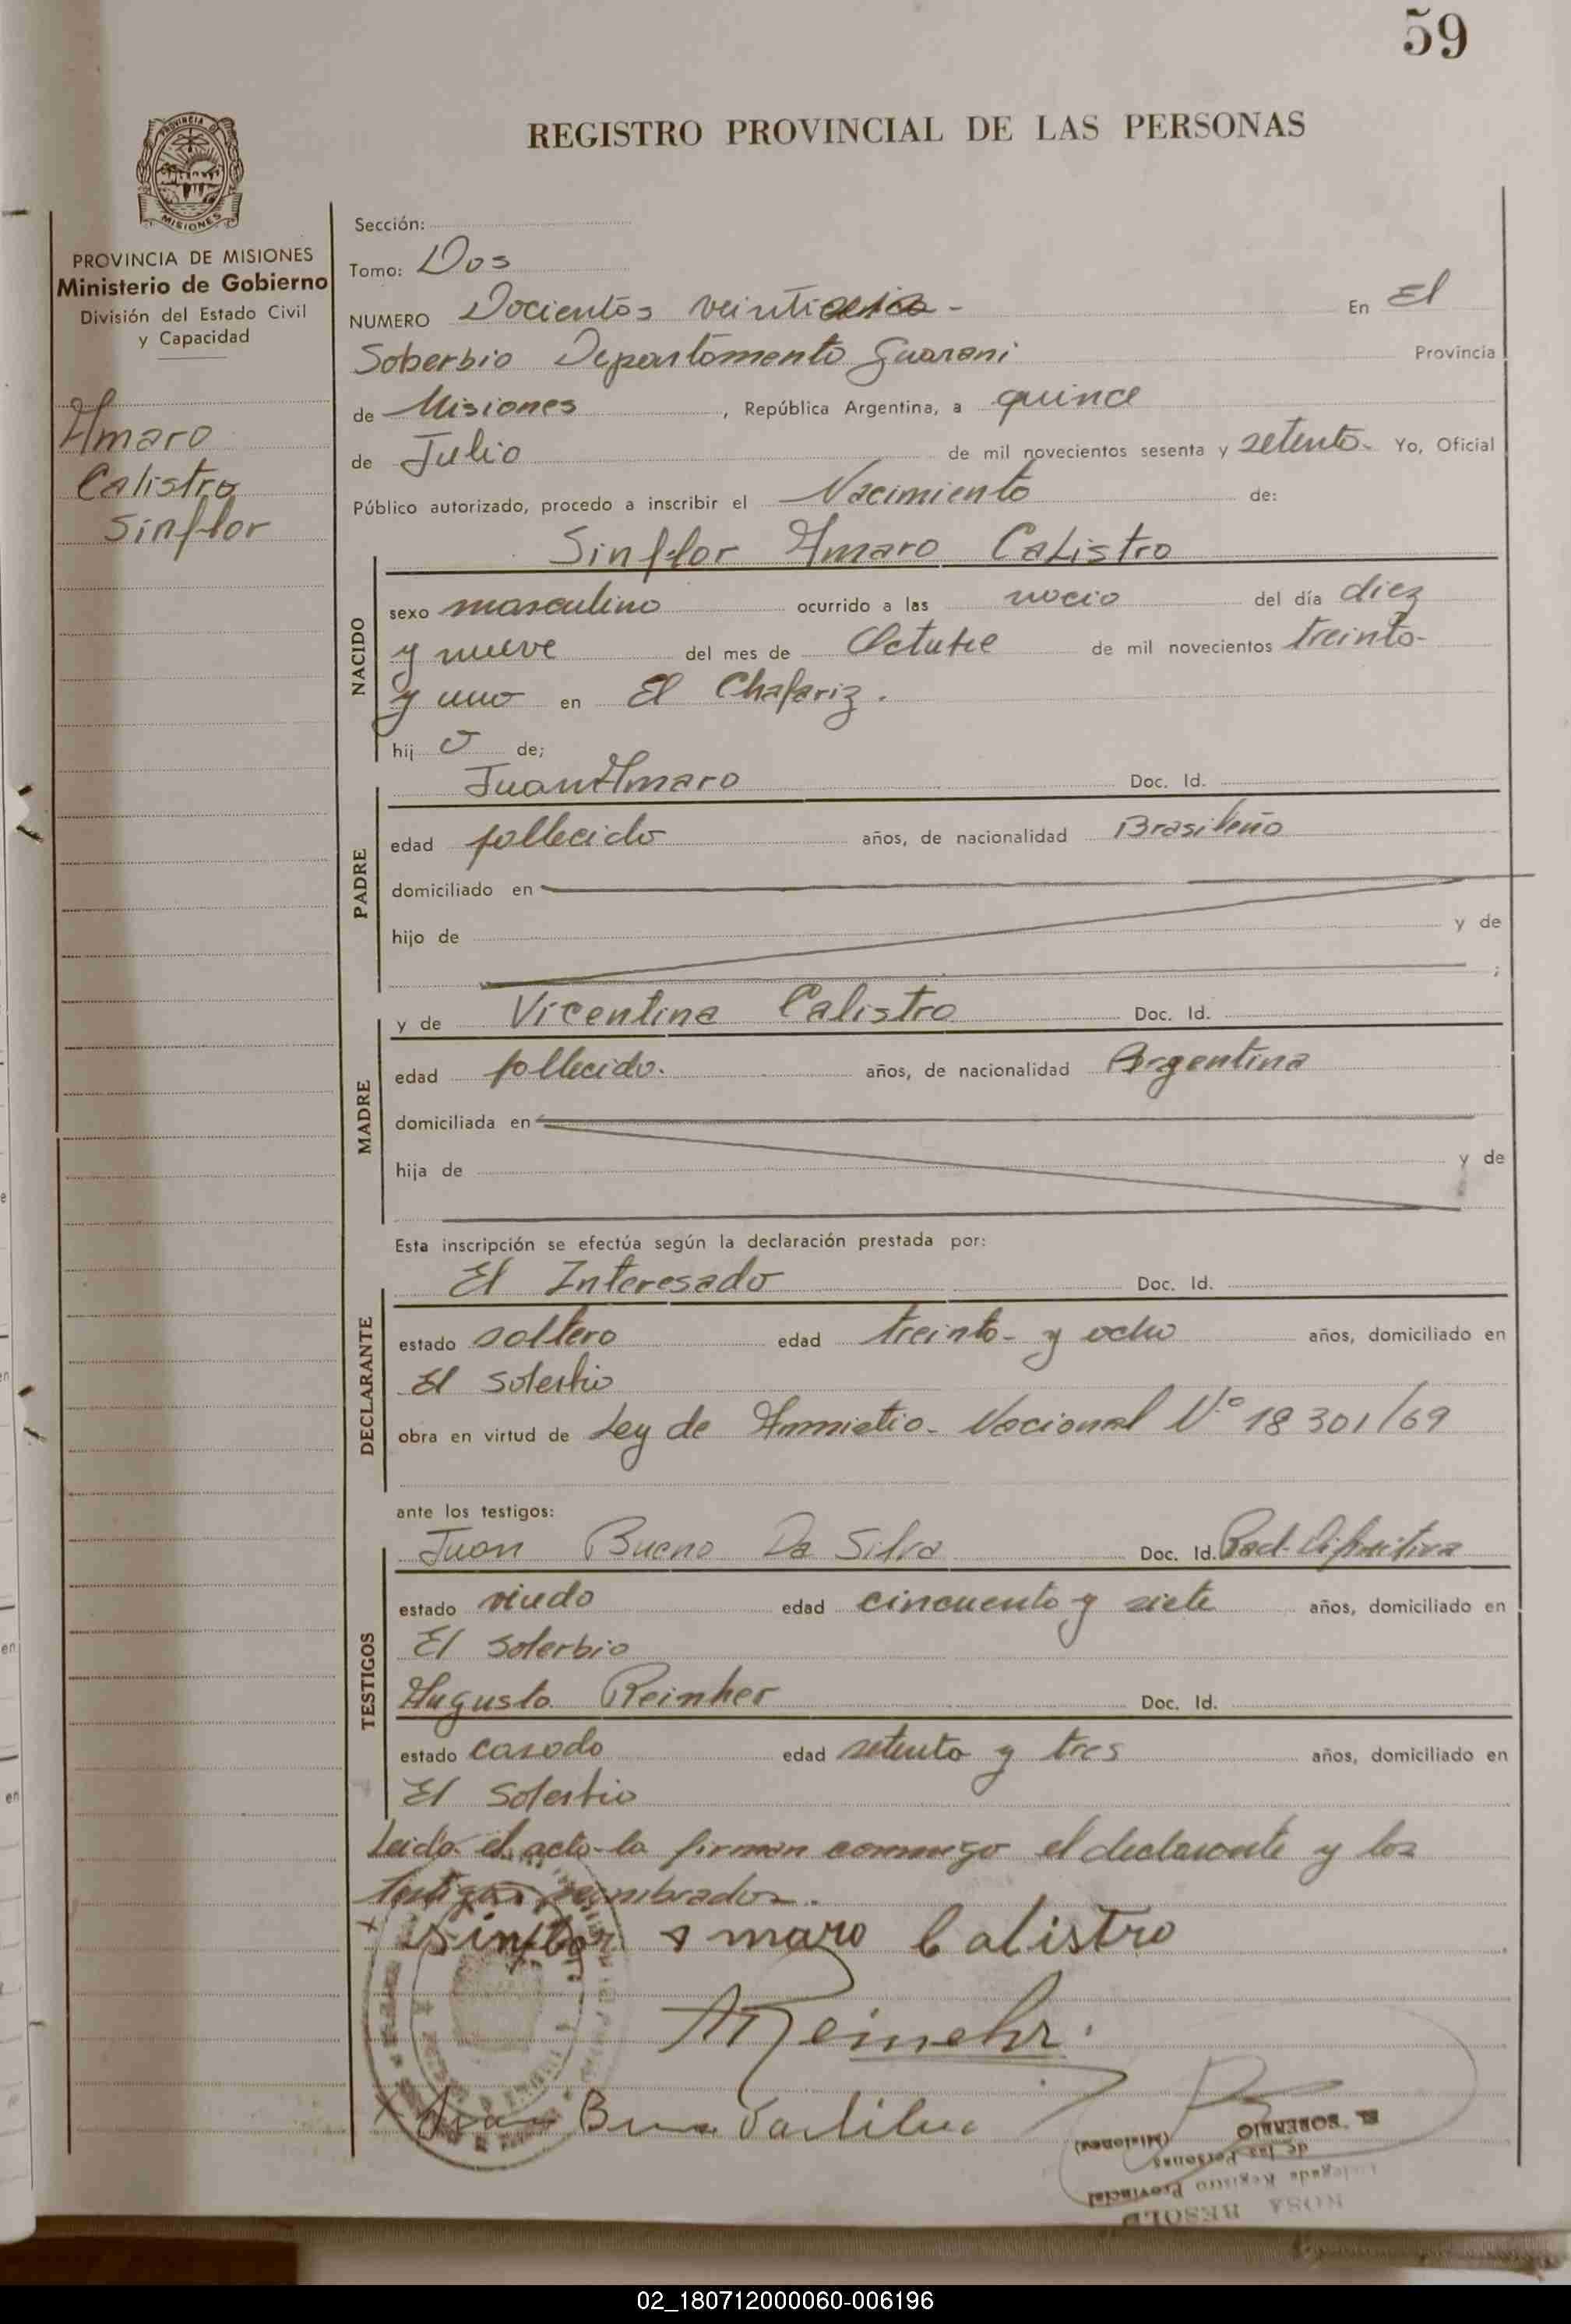 59
REGISTRO PROVINCIAL DE LAS PERSONAS
PROVINCIA DE MISIONES
MISIONES
PROVINCIA DE MISIONES
Ministerio de Gobierno
División del Estado Civil
y Capacidad
Amaro
Calistro
Sinflor
Sección:
Tomo: Dos
NUMERO Docientos - En El
Soberbio Departamento Guarani Provincia
de Misiones, República Argentina, a quince
de Julio de mil novecientos sesenta y setenta. Yo, Oficial
Público autorizado, procedo a inscribir el Nacimiento de:
Sinflor Amaro Calistro
NACIDO
sexo masculino ocurrido a las del día diez
y nueve del mes de Octubre de mil novecientos treinta
y uno en El Chafariz.
hij o de;
PADRE
Juan Amaro Doc. Id.
edad fallecido años, de nacionalidad Brasileño
domiciliado en
hijo de y de
;
MADRE
y de Vicentina Calistro Doc. Id.
edad fallecida. años, de nacionalidad Argentina
domiciliada en
hija de y de
Esta inscripción se efectúa según la declaración prestada por:
DECLARANTE
El Interesado Doc. Id.
estado soltero edad treinta y ocho años, domiciliado en
El Soberbio
obra en virtud de Ley de Amnistia Nacional Nº 18301/69
ante los testigos:
TESTIGOS
Juan Bueno Da Silva Doc. Id. Rad. Difinitiva
estado viudo edad cincuenta y siete años, domiciliado en
El Soberbio
Augusto Reinher Doc. Id.
estado casado edad setenta y tres años, domiciliado en
El Soberbio
Leida el acta la firman conmigo el declarante y los
testigos nombrados.
Sinflor amaro Calistro
A Reinehr.
Juan Bueno Da Silva
ROSA RESOLD
Delegada Registro Provincial
de las Personas
EL SOBERBIO (Misiones)
02_180712000060-006196